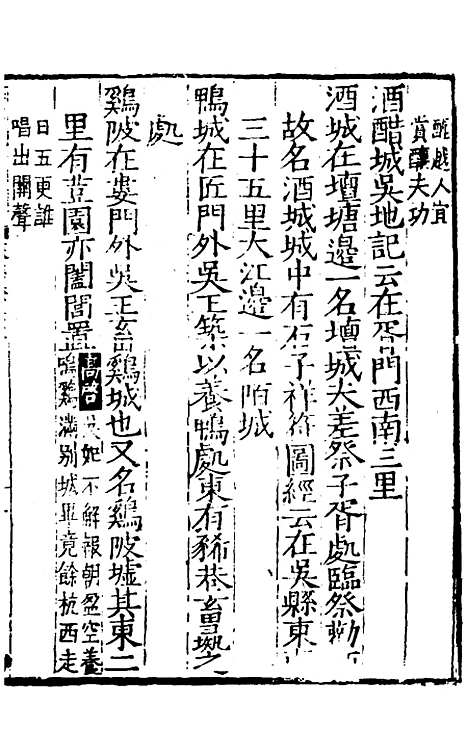 醢越人宜
賞釀夫功
酒醋城吳地記云在胥門西南三里
酒城在壇塘邊一名壇城夫差祭子胥處臨祭勸
故名酒城城中有石子祥符圖經云在吳縣東
三十五里大江邊一名陌城
鴨城在匠門外吳王築以養鴨處東有豨巷畜彘之
處
鷄陂在婁門外吳王畜鷄城也又名鷄陂墟其東二
里有荳園亦闔閭置
高啓
如不解報朝盈空養
鳴鷄滿別城畢竟餘杭西走
日五更誰
唱出關聲